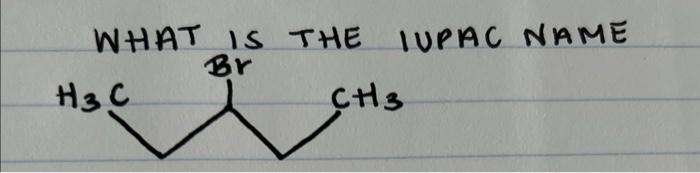 WHAT IS THE IUPAC NAME
Br
H3C CH3